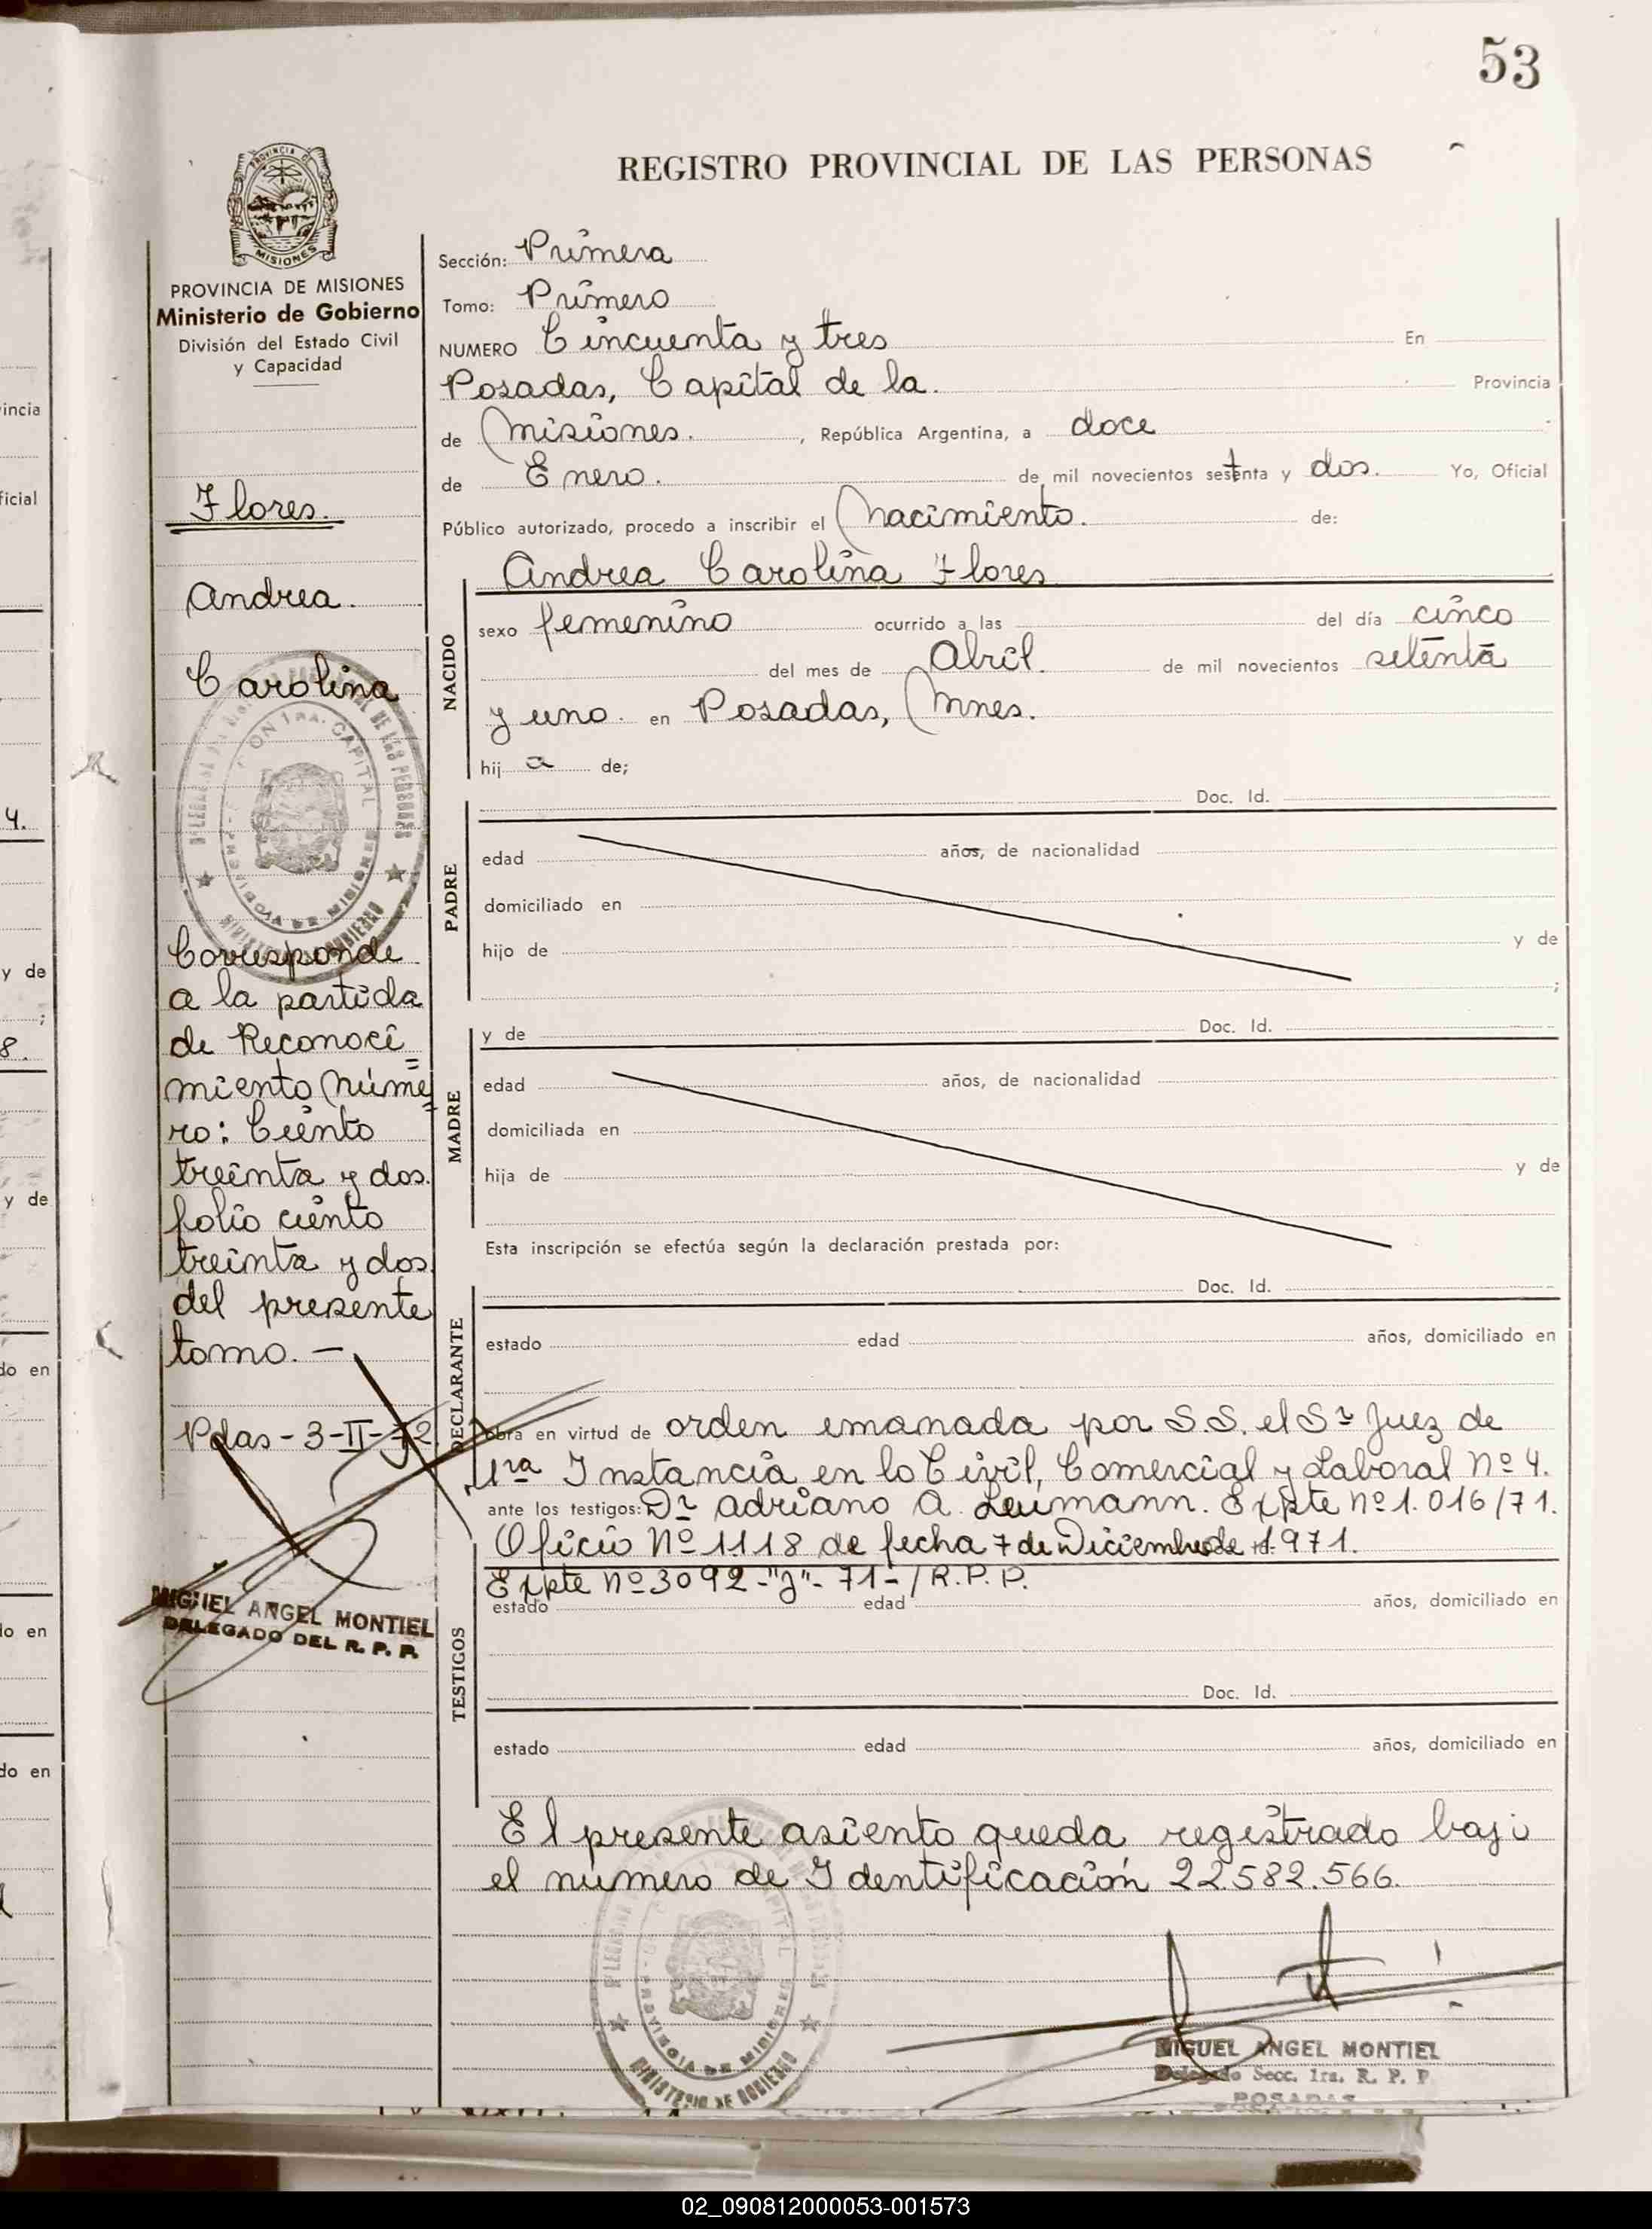 53
REGISTRO PROVINCIAL DE LAS PERSONAS
PROVINCIA DE MISIONES
Ministerio de Gobierno
División del Estado Civil
y Capacidad
Flores.
Andrea.
Carolina
Corresponde
a la partida
de Reconoci=
miento Núme=
ro: Ciento
treinta y dos.
folio ciento
treinta y dos.
del presente
tomo. —
Pdas - 3-II-72.
MIGUEL ANGEL MONTIEL
DELEGADO DEL R. P. P.
Sección: Primera
Tomo: Primero
NUMERO Cincuenta y tres En
Posadas, Capital de la. Provincia
de Misiones. , República Argentina, a doce
de Enero. de mil novecientos setenta y dos. Yo, Oficial
Público autorizado, procedo a inscribir el Nacimiento. de:
Andrea Carolina Flores
NACIDO
sexo femenino ocurrido a las del día cinco
del mes de Abril. de mil novecientos setenta
y uno. en Posadas, Mnes.
hij a de;
Doc. Id.
PADRE
edad años, de nacionalidad
domiciliado en
hijo de y de
;
y de Doc. Id.
MADRE
edad años, de nacionalidad
domiciliada en
hija de y de
Esta inscripción se efectúa según la declaración prestada por:
Doc. Id.
DECLARANTE
estado edad años, domiciliado en
obra en virtud de orden emanada por S.S. el Sr Juez de
1ra Instancia en lo Civil, Comercial y Laboral Nº 4.
ante los testigos: Dr Adriano A. Leumann. Expte nº 1.016/71.
Oficio Nº 1118 de fecha 7 de Diciembre de 1971.
Expte nº 3092-"J"-71-/R.P.P.
TESTIGOS
estado edad años, domiciliado en
Doc. Id.
estado edad años, domiciliado en
El presente asiento queda registrado bajo
el número de Identificación 22.582.566.
MIGUEL ANGEL MONTIEL
Delegado Secc. 1ra. R. P. P
POSADAS
02_090812000053-001573